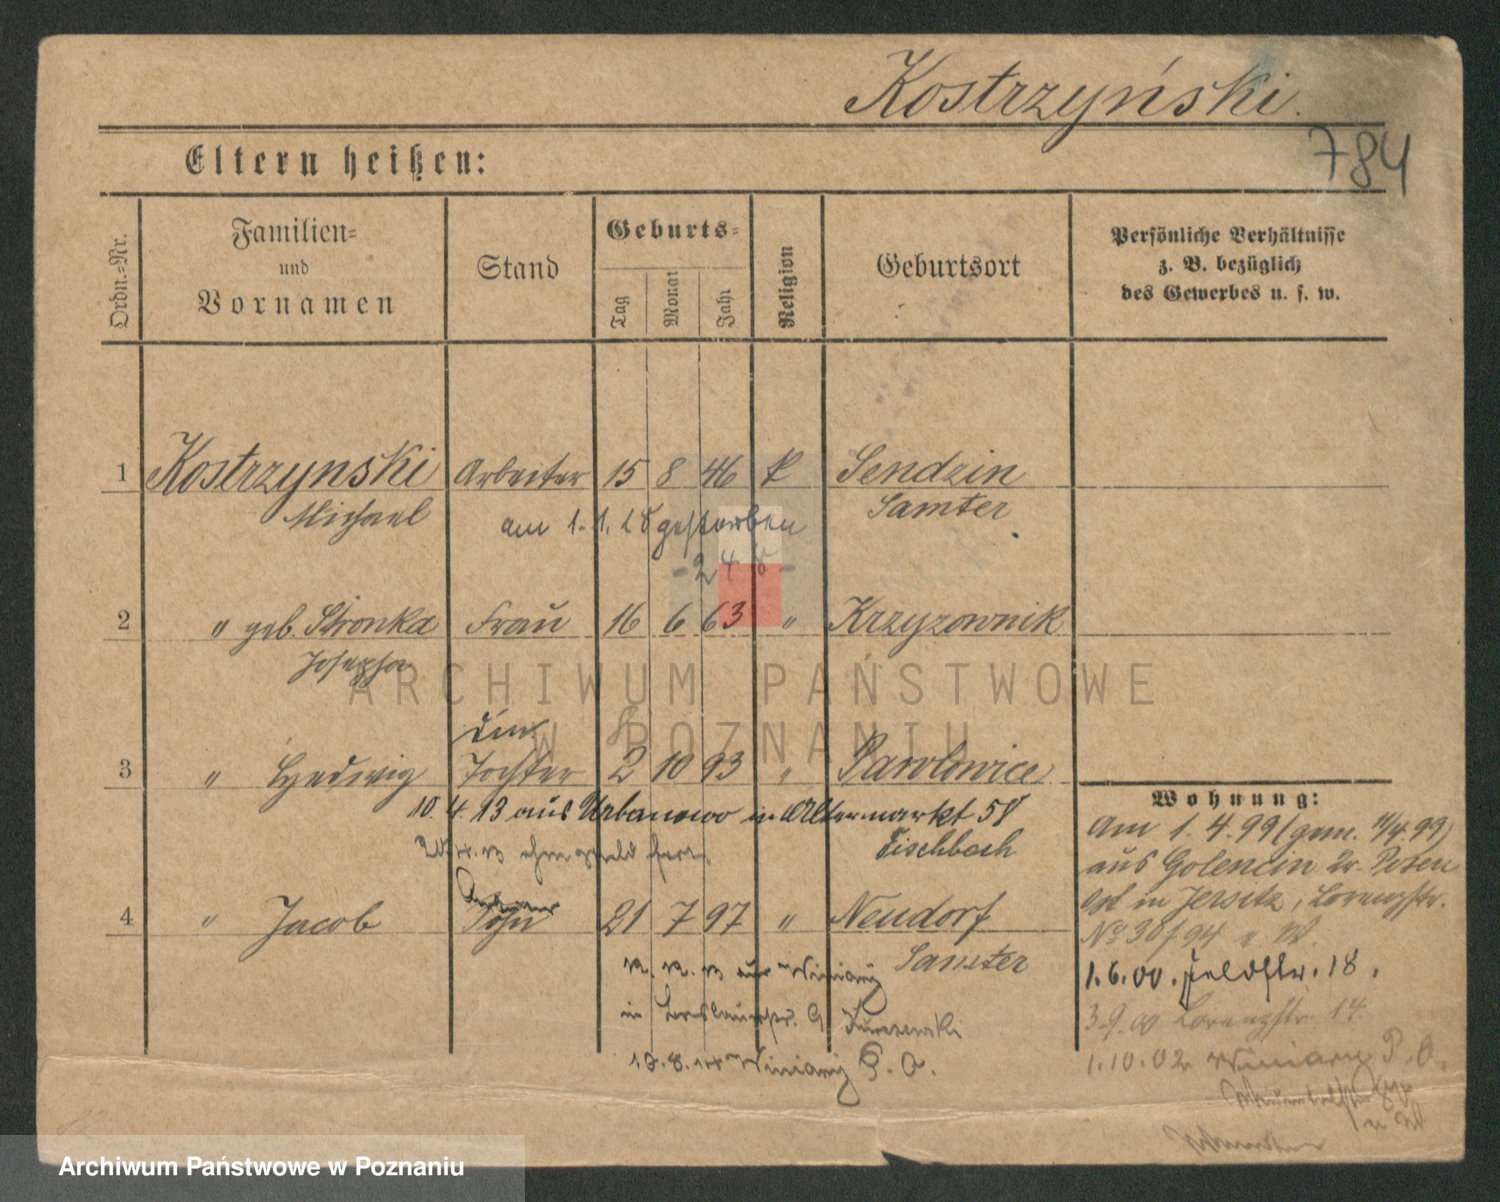 Kostrzyński.
784
Eltern heißen:
Ordn.-Nr.
Familien-
und
Vornamen
Stand
Geburts-
Tag
Monat
Jahr
Religion
Geburtsort
Persönliche Verhältnisse
z. B. bezüglich
des Gewerbes u. s. w.
1 Kostrzynski Arbeiter 15 8 46 k Sendzin
Michael Samter
am 1. 1. 28 gestorben
- 248 -
2 " geb. Stronka Frau 16 6 63 " Krzyzownik
Josepha
ARCHIWUM PAŃSTWOWE
W POZNANIU
3 " Hedwig Tochter 2 10 93 " Pawlowice
10. 4. 13 aus Urbanowo in Altermarkt 58
Eischbach
4 " Jacob Sohn 21 7 97 " Neudorf
Samter
12. 12. 13 aus Winiary
in Breslauerstr. 9
13. 8. 14 Winiary P. O.
Wohnung:
Am 1. 4. 99 (gem. 11/4 99)
aus Golencin Kr. Posen
Ost in Jersitz, Lorenzstr.
No 30/94 v. W.
1. 6. 00. Feldstr. 18.
3. 9. 00 Lorenzstr. 14.
1. 10. 02 Winiary P. O.
Archiwum Państwowe w Poznaniu